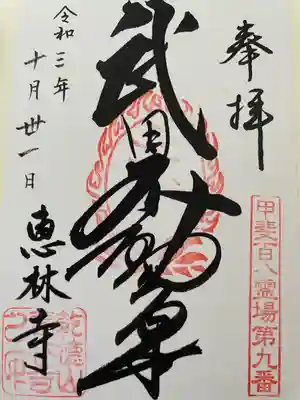 奉拝
甲斐百八霊場第九番
武田不動尊
令和三年
十月卅一日
恵林寺